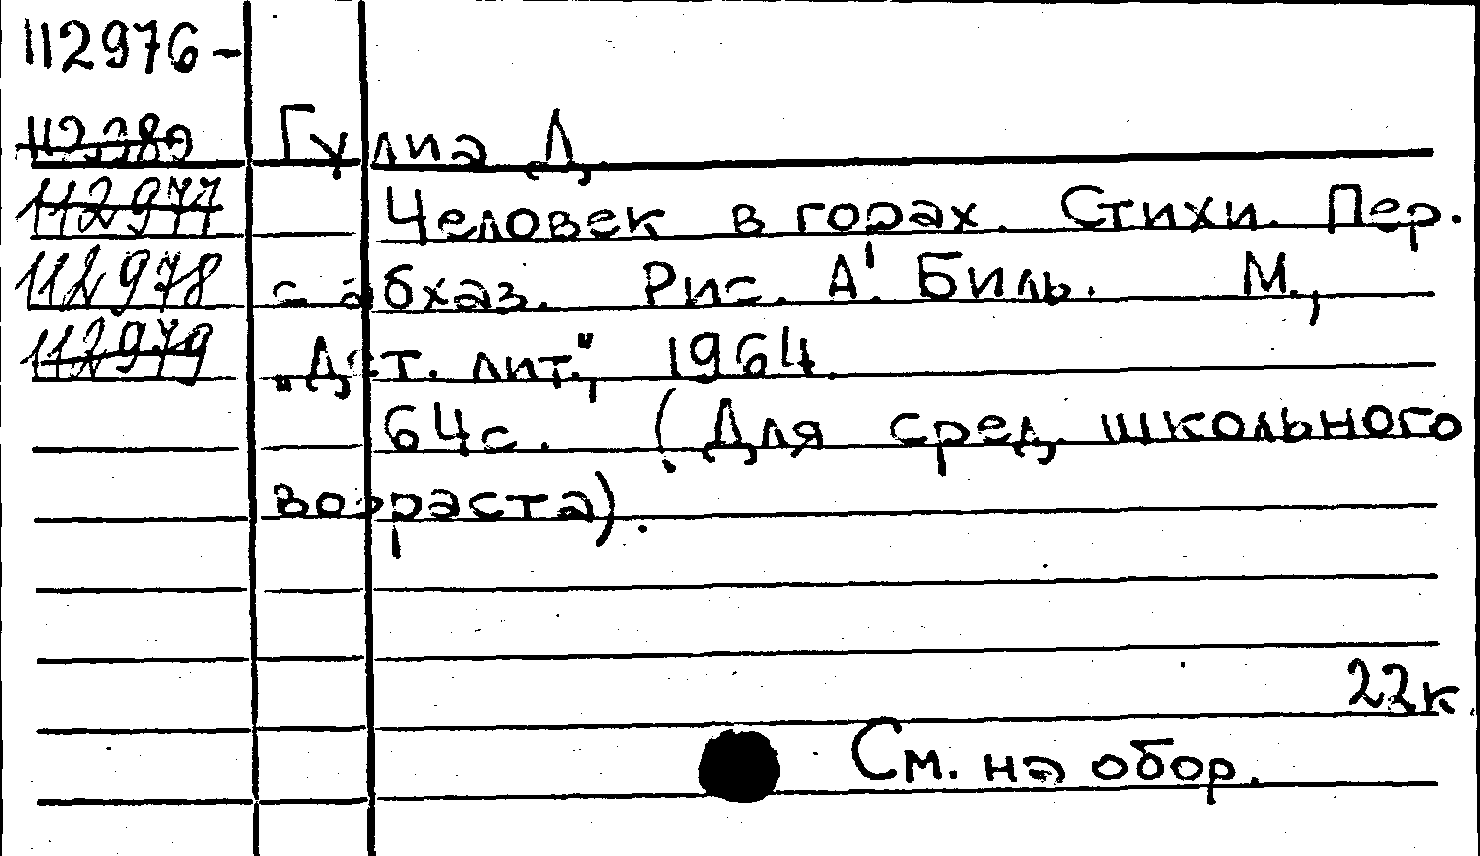 112976-
112980 Гулиа Д.
112977 Человек в горах. Стихи. Пер.
112978 с абхаз. Рис. А. Биль. М.,
112979 „Дет. лит.", 1964.
64с. (Для сред. школьного
возраста).
22к.
См. на обор.